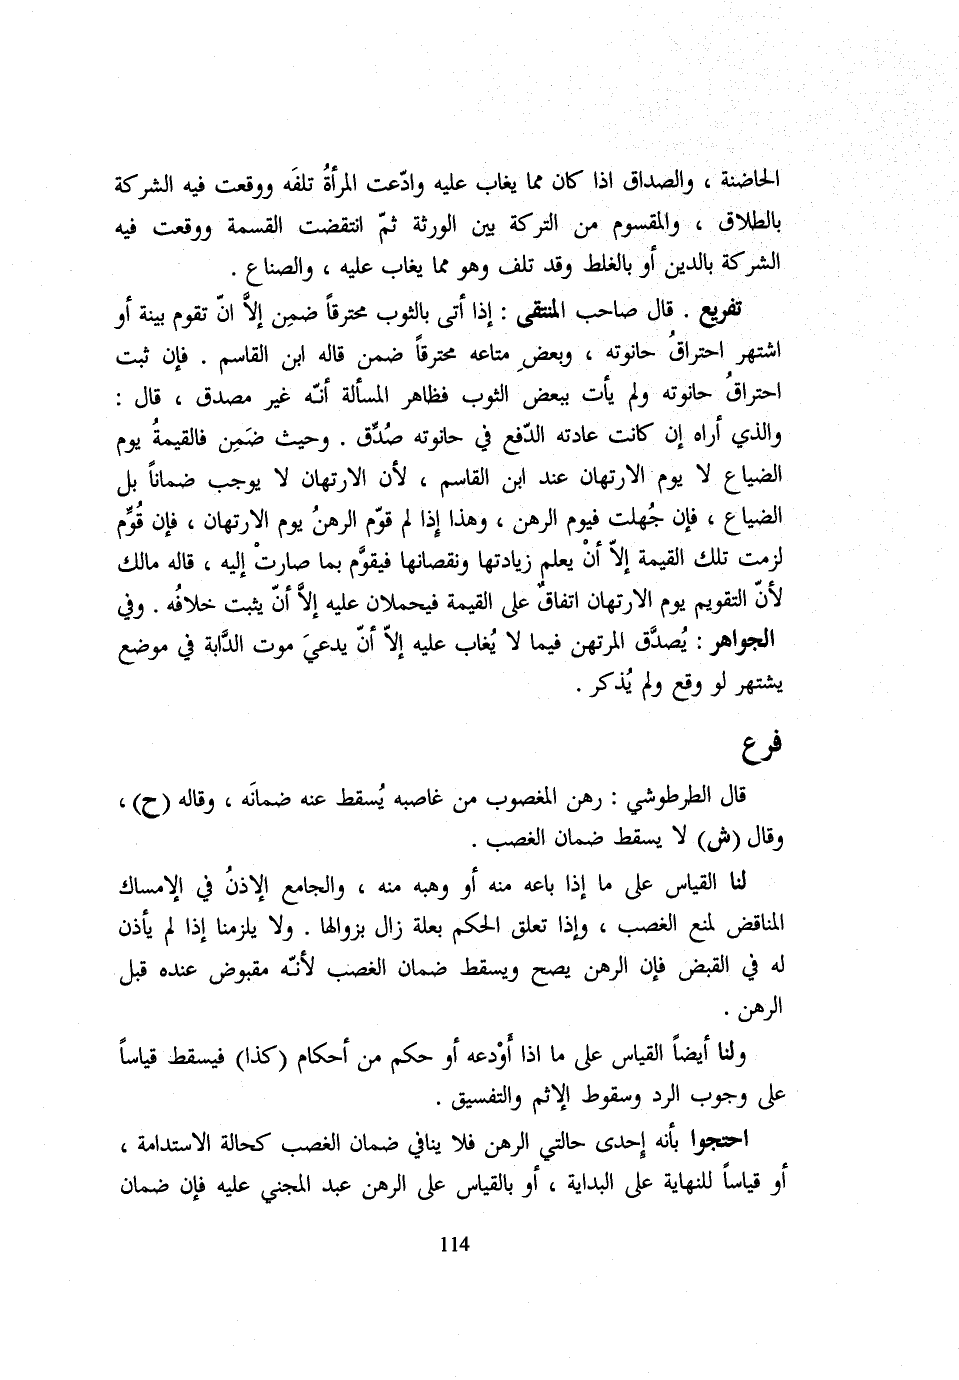 الحاضنة ، والصداق اذا كان مما يغاب عليه وادّعت المرأةُ تلفَه ووقعت فيه الشركة
بالطلاق ، والمقسوم من التركة بين الورثة ثمّ انتقضت القسمة ووقعت فيه
الشركة بالدين أو بالغلط وقد تلف وهو مما يغاب عليه ، والصناع .
تفريع . قال صاحب المنتقى : إذا أتى بالثوب محترقاً ضمِن إلاَّ انّ تقوم بينة أو
اشتهر احتراقُ حانوته ، وبعضِ متاعه محترقاً ضمن قاله ابن القاسم . فإن ثبت
احتراقُ حانوته ولم يأت ببعض الثوب فظاهر المسألة أنّه غير مصدق ، قال :
والذي أراه إن كانت عادته الدّفع في حانوته صُدِّق . وحيث ضَمِن فالقيمةُ يوم
الضياع لا يوم الارتهان عند ابن القاسم ، لأن الارتهان لا يوجب ضماناً بل
الضياع ، فإن جُهلت فيوم الرهن ، وهذا إذا لم قوّم الرهنُ يوم الارتهان ، فإن قُوِّم
لزمت تلك القيمة إلاّ أنْ يعلم زيادتها ونقصانها فيقوَّم بما صارتْ إليه ، قاله مالك
لأنّ التقويم يوم الارتهان اتفاقٌ على القيمة فيحملان عليه إلاَّ أنّ يثبت خلافُه . وفي
الجواهر : يُصدَّق المرتهن فيما لا يُغاب عليه إلاّ أنّ يدعيَ موت الدَّابة في موضع
يشتهر لو وقع ولم يُذكر .
فرع
قال الطرطوشي : رهن المغصوب من غاصبه يُسقط عنه ضمانَه ، وقاله (ح) ،
وقال (ش) لا يسقط ضمان الغصب .
لنا القياس على ما إذا باعه منه أو وهبه منه ، والجامع الإذنُ في الإمساك
المناقض لمنع الغصب ، وإذا تعلق الحكم بعلة زال بزوالها . ولا يلزمنا إذا لم يأذن
له في القبض فإن الرهن يصح ويسقط ضمان الغصب لأنّه مقبوض عنده قبل
الرهن .
ولنا أيضاً القياس على ما اذا أَوْدعه أو حكم من أحكام (كذا) فيسقط قياساً
على وجوب الرد وسقوط الإثم والتفسيق .
احتجوا بأنه إحدى حالتي الرهن فلا ينافي ضمان الغصب كحالة الاستدامة ،
أو قياساً للنهاية على البداية ، أو بالقياس على الرهن عبد المجني عليه فإن ضمان
114